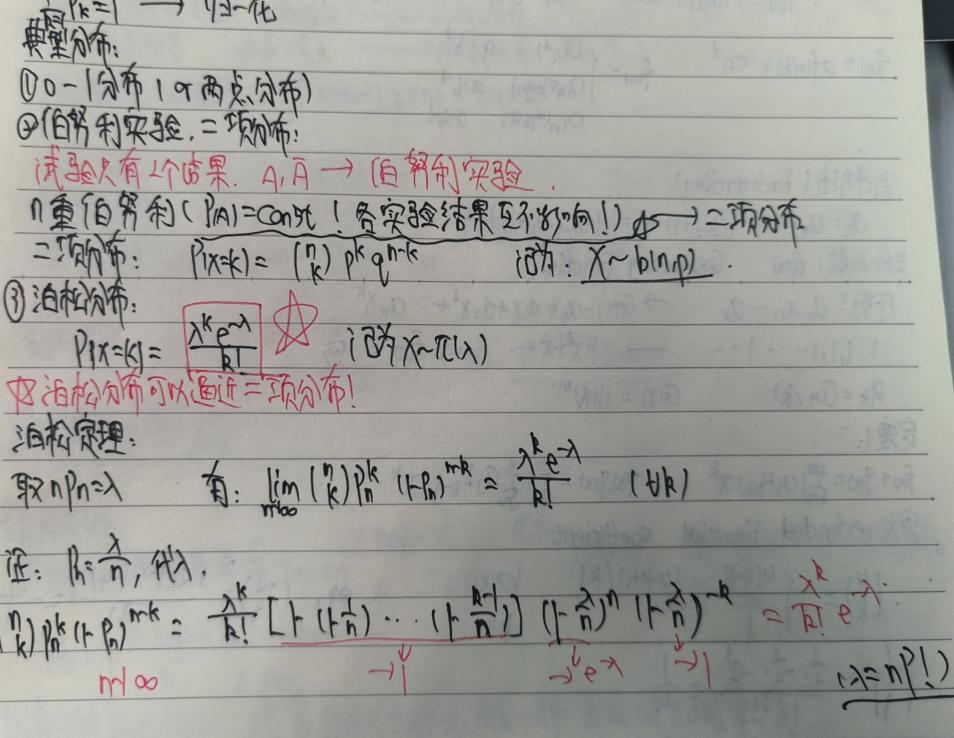 Pk=1 → 归一化
典型分布:
①0-1分布 (or 两点分布)
②伯努利实验,二项分布:
试验只有2个结果. A, Ā → 伯努利实验.
n重伯努利(P(A)=const! 各实验结果互不影响!) → 二项分布
二项分布: P(x=k)= (n k) p^k q^{n-k} 记为: X~b(n,p).
③泊松分布:
P(X=k)= λ^k e^{-λ}/k! ☆ 记为X~π(λ)
☆泊松分布可以逼近二项分布!
泊松定理:
取npn=λ 有: lim n→∞ (n k) Pn^k (1-Pn)^{n-k} = λ^k e^{-λ}/k! (∀k)
证: Pn=λ/n, 代入.
(n k) Pn^k (1-Pn)^{n-k} = λ^k/k! [1·(1-1/n)···(1-(k-1)/n)] (1-λ/n)^n (1-λ/n)^{-k} = λ^k/k! e^{-λ}.
n→∞ →1 →e^{-λ} →1
(λ=nP!)